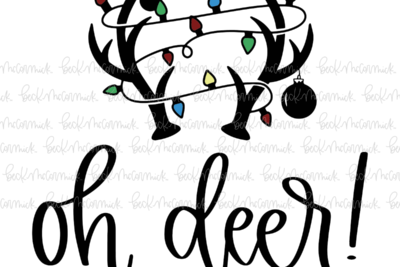 oh deer!